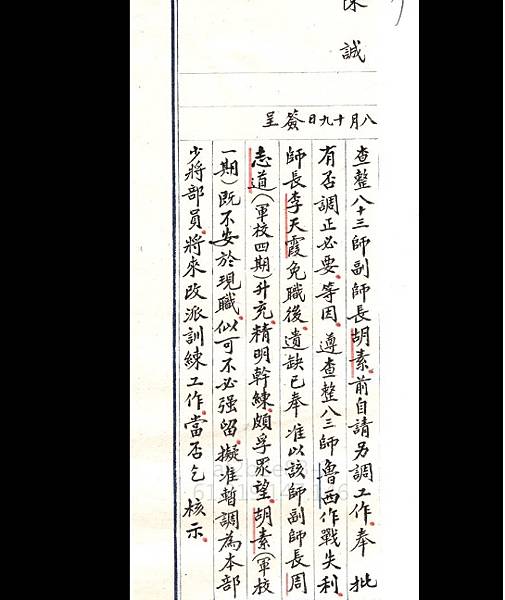 陳誠
八月十九日簽呈
查整八十三師副師長胡素前自請另調工作奉 批
有否調正必要等因遵查整八三師魯西作戰失利
師長李天霞免職後遺缺已奉 准以該師副師長周
志道(軍校四期)升充精明幹練頗孚眾望胡素(軍校
一期)既不安於現職似可不必强留擬准暫調為本部
少將部員將來改派訓練工作當否乞 核示